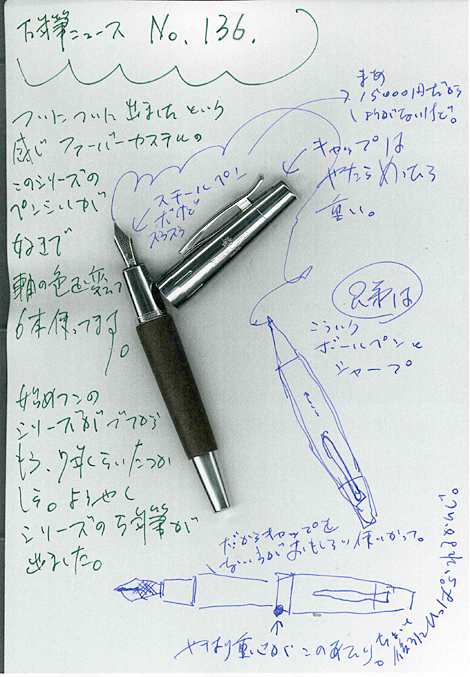 万年筆ニュース No. 136.
ついについに出ましたという
感じ ファーバーカステルの
このシリーズの
ペンシルが
好きで
軸の色を変えて
6本使ってます。
始めコンの
シリーズがでてから
もう、7年くらいたつか
しら。ようやく
シリーズの万年筆が
出ました。
スチールペン
だけど
スラスラ
まあ
15000円だから
しょうがないけど。
キャップは
やたらめったら
重い。
兄弟は
こういう
ボールペンと
シャープ
だからキャップを
ないほうがおもしろい使いかって。
やはり重心がこの辺り。
ちょっと